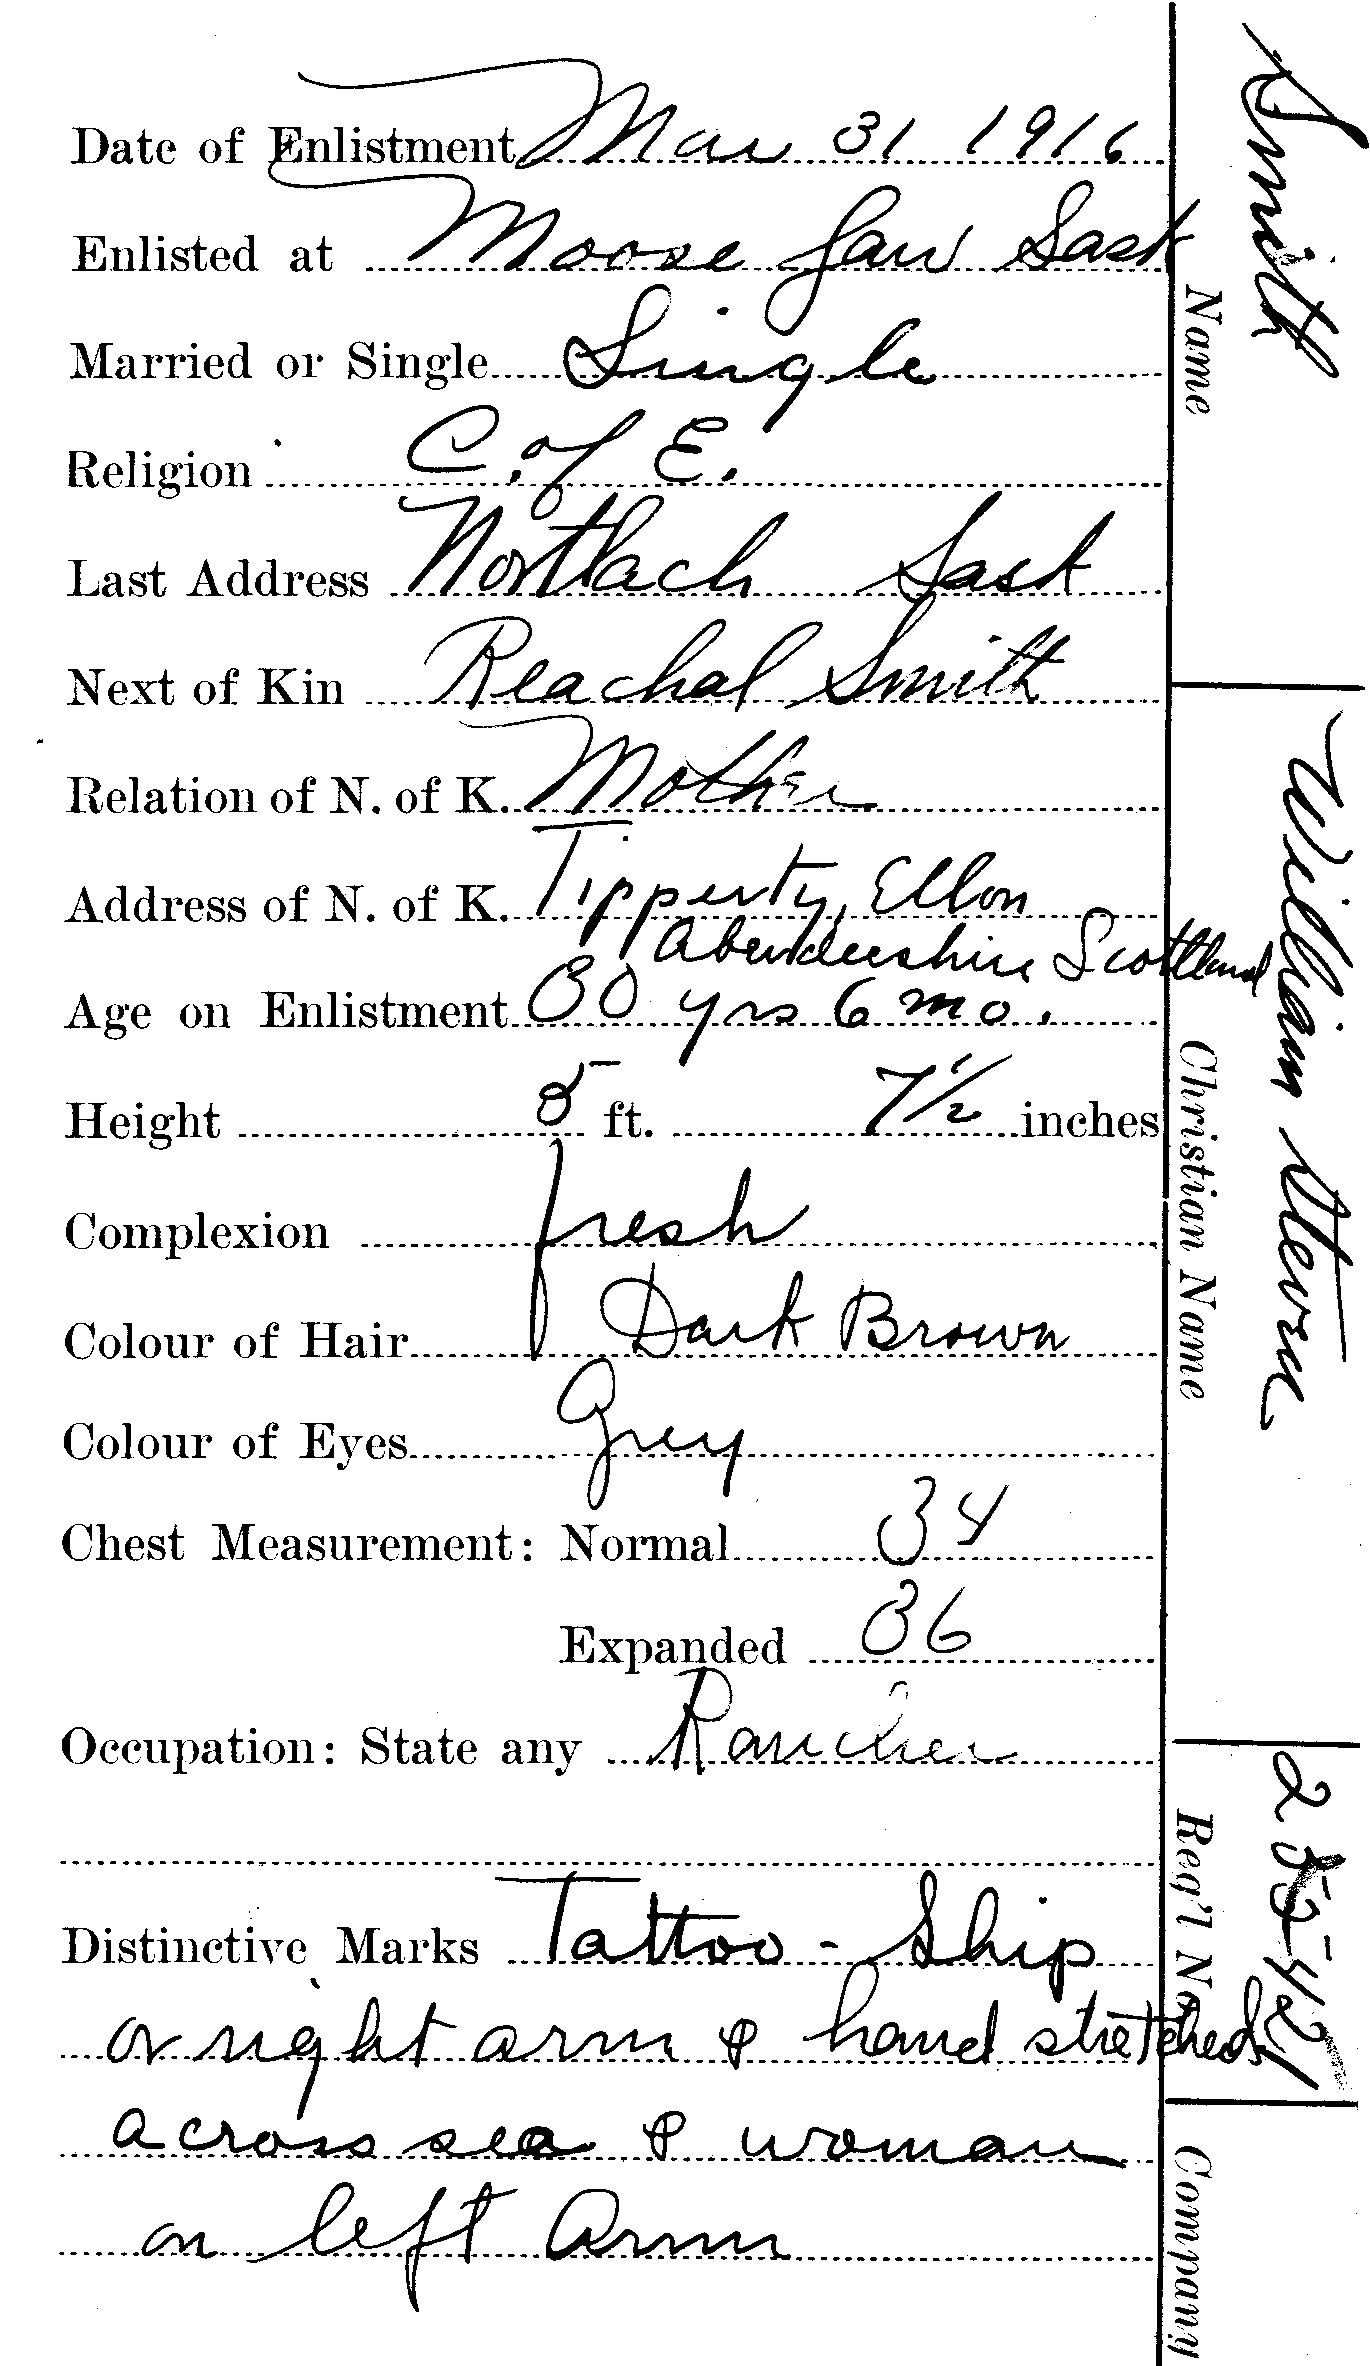 Date of Enlistment Mar 31 1916
Enlisted at Moose Jaw Sask
Married or Single Single
Religion C. of E.
Last Address Mortlach Sask
Next of Kin Reachal Smith
Relation of N. of K. Mother
Address of N. of K. Tipperty, Ellon
Aberdeenshire Scotland
Age on Enlistment 30 yrs 6 mo.
Height 5 ft. 7½ inches
Complexion fresh
Colour of Hair Dark Brown
Colour of Eyes Grey
Chest Measurement: Normal 34
Expanded 36
Occupation: State any Rancher
Distinctive Marks Tattoo - Ship
on right arm & hand stretched
across sea & woman
on left arm
Smith
Name
William Steven
Christian Name
Reg'l No.
Company